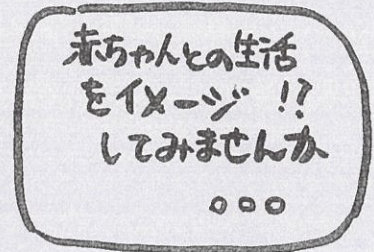 赤ちゃんとの生活
をイメージ!?
してみませんか
。。。